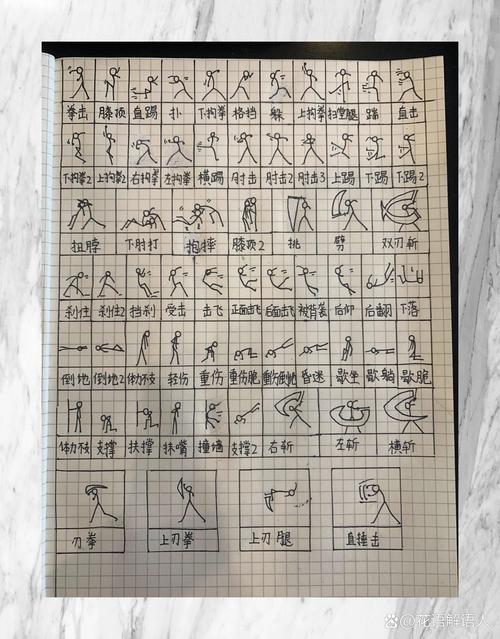 拳击 膝顶 直踢 扑 下拘拳 格挡 躲 上拘拳 扫堂腿 踹 直击
下拘拳2 上拘拳2 右拘拳 左拘拳 横踢 肘击 肘击2 肘击3 上踢 下踢 下踢2
扭脖 下肘打 抱摔 膝顶2 挑 劈 双刃斩
刹住 刹住2 挡刹 受击 击飞 正面击飞 后面击飞 被背袭 后仰 后翻 下落
倒地 倒地2 体力不支 轻伤 重伤 重伤跪 重伤倒地 昏迷 歇坐 歇躺 歇跪
体力不支 支撑 扶撑 抹嘴 撞墙 支撑2 右斩 左斩 横斩
刃拳 上刃拳 上刃腿 直捶击
花语解语人